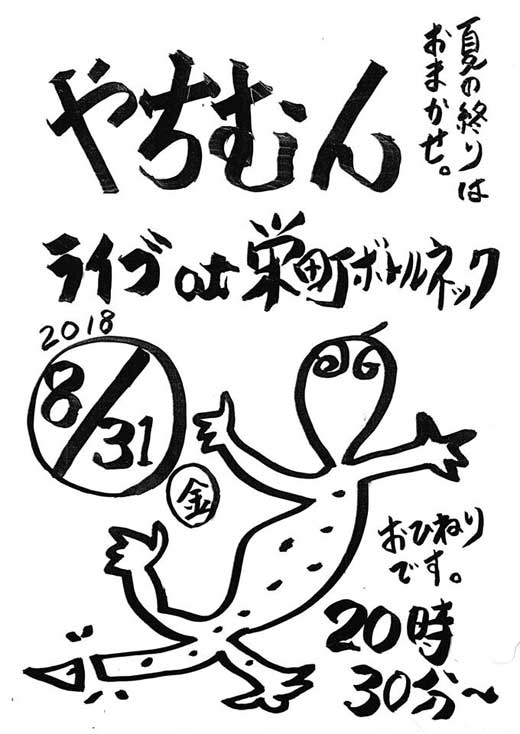 夏の終りは
おまかせ。
やちむん
ライブat栄町ボトルネック
2018
8/31
金
おひねり
です。
20時
30分~